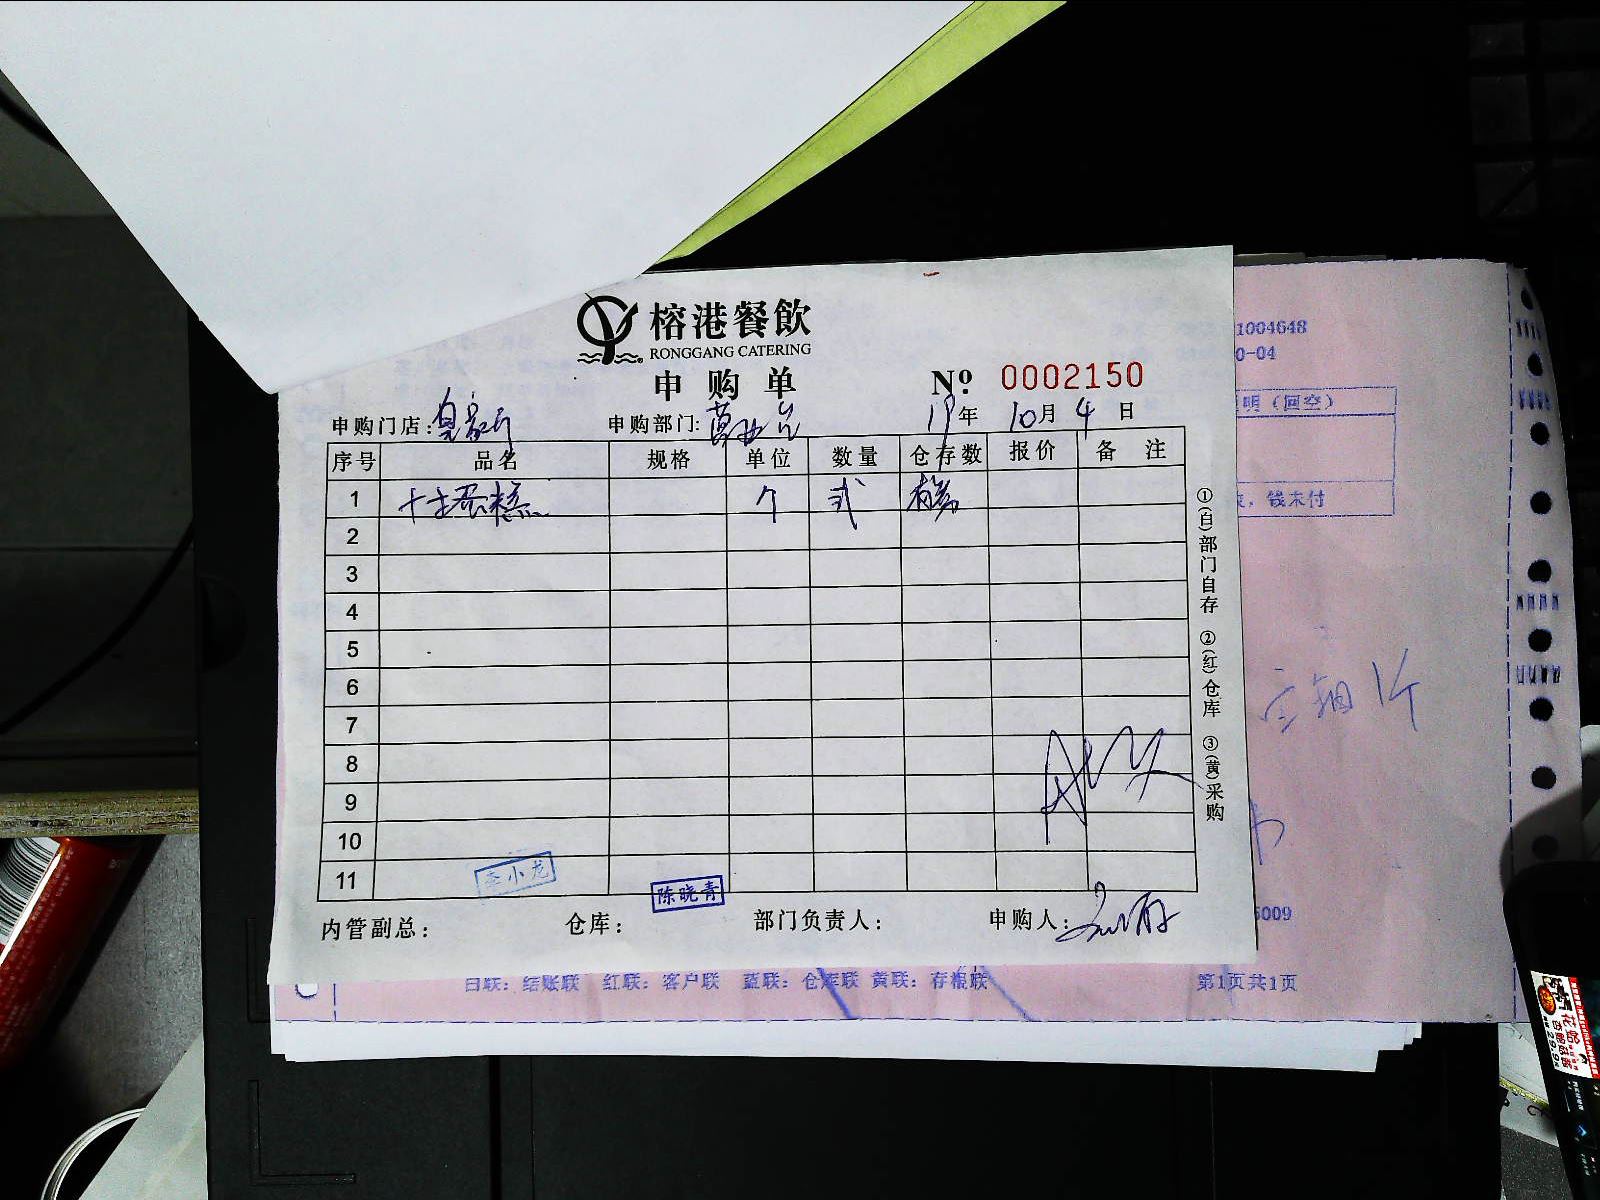 榕港餐飲
RONGGANG CATERING
申购单 Nº 0002150
申购门店: 申购部门: 19年 10月 4日
序号 品名 规格 单位 数量 仓存数 报价 备注
1 十寸蛋糕 个 弍
2
3
4
5
6
7
8
9
10
11
李小龙
陈晓青
内管副总: 仓库: 部门负责人: 申购人:
①(白)部门自存 ②(红)仓库 ③(黄)采购
1004648
0-04
明（回空）
钱未付
6009
白联：结账联 红联：客户联 蓝联：仓库联 黄联：存根联 第1页共1页